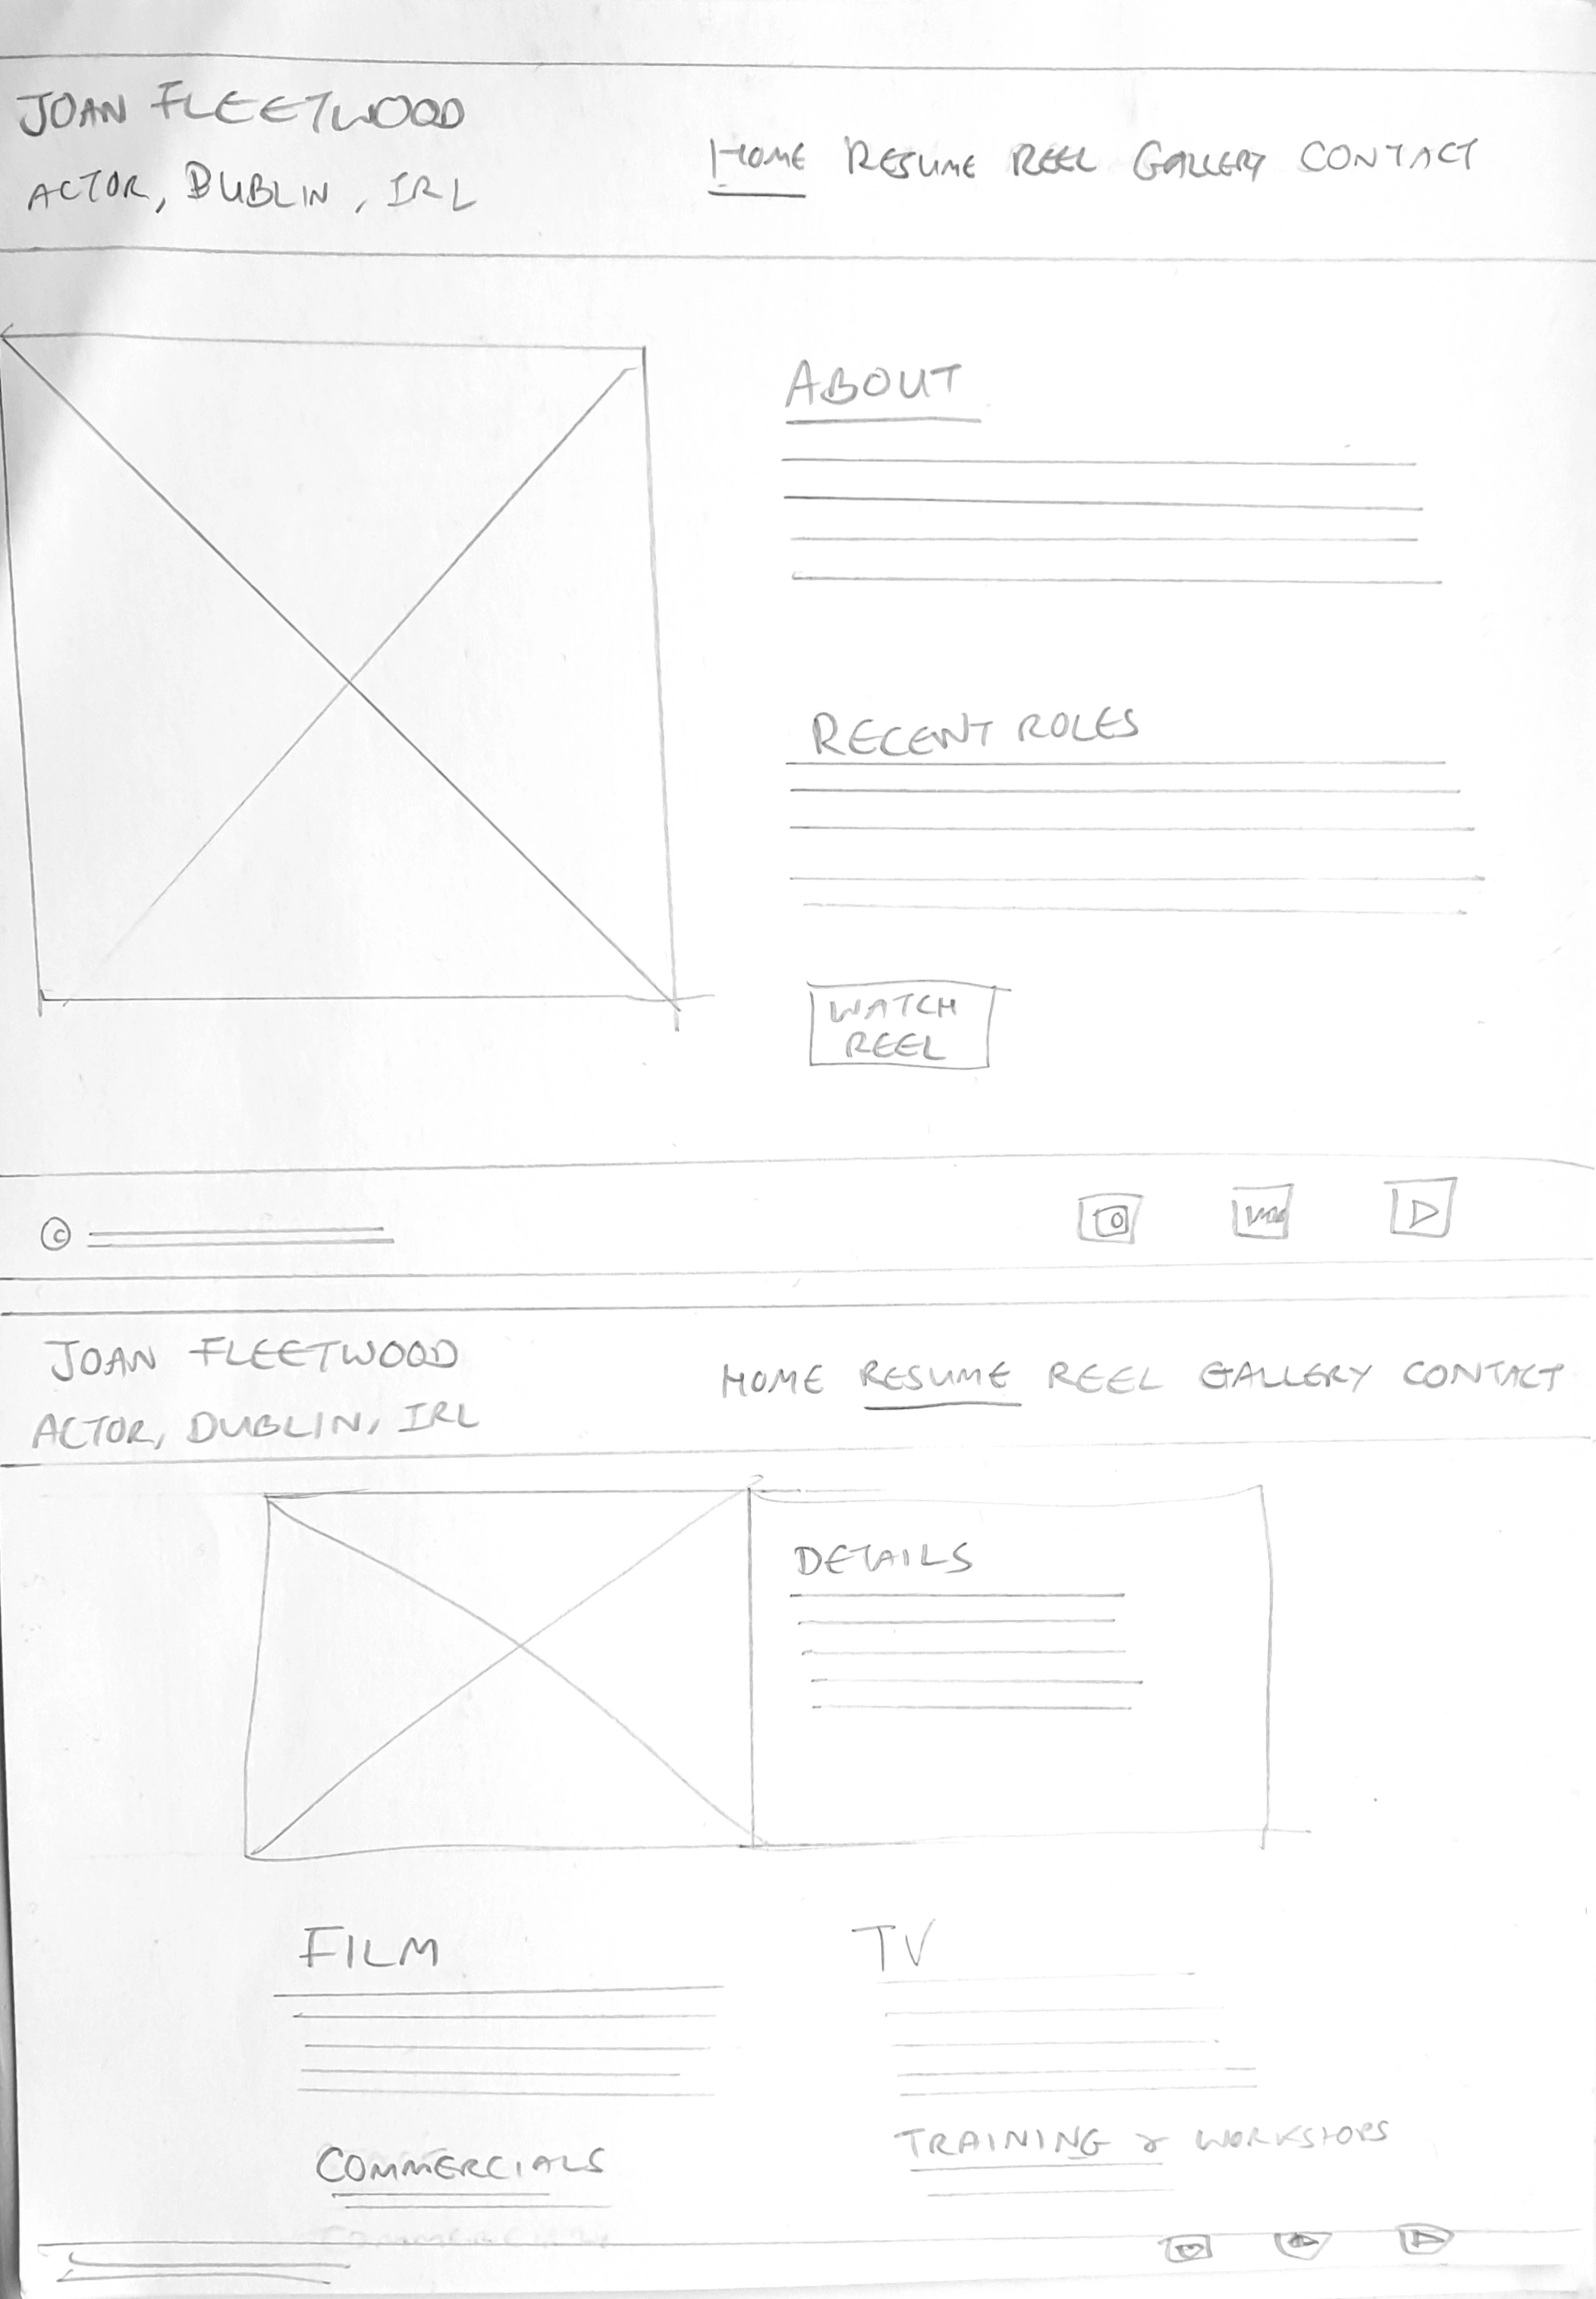 JOAN FLEETWOOD
ACTOR, DUBLIN, IRL
HOME RESUME REEL GALLERY CONTACT
ABOUT
RECENT ROLES
WATCH
REEL
©
JOAN FLEETWOOD
ACTOR, DUBLIN, IRL
HOME RESUME REEL GALLERY CONTACT
DETAILS
FILM
TV
COMMERCIALS
TRAINING & WORKSHOPS